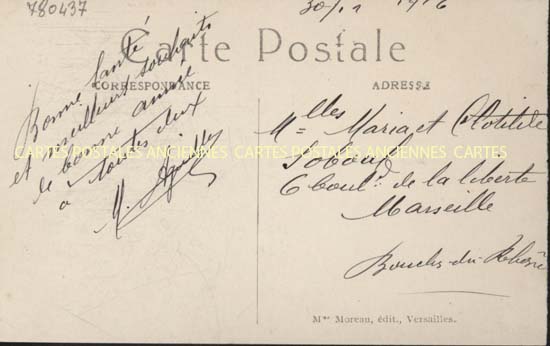 780437
30/12 1916
Carte Postale
CORRESPONDANCE
ADRESSE
Bonne Santé
et meilleurs souhaits
de bonne année
à toutes deux
M.
Melles Maria et Clotilde
6 boul. de la liberte
Marseille
Bouches-du-Rhône
CARTES POSTALES ANCIENNES CARTES POSTALES ANCIENNES CARTES
Mme Moreau, édit., Versailles.